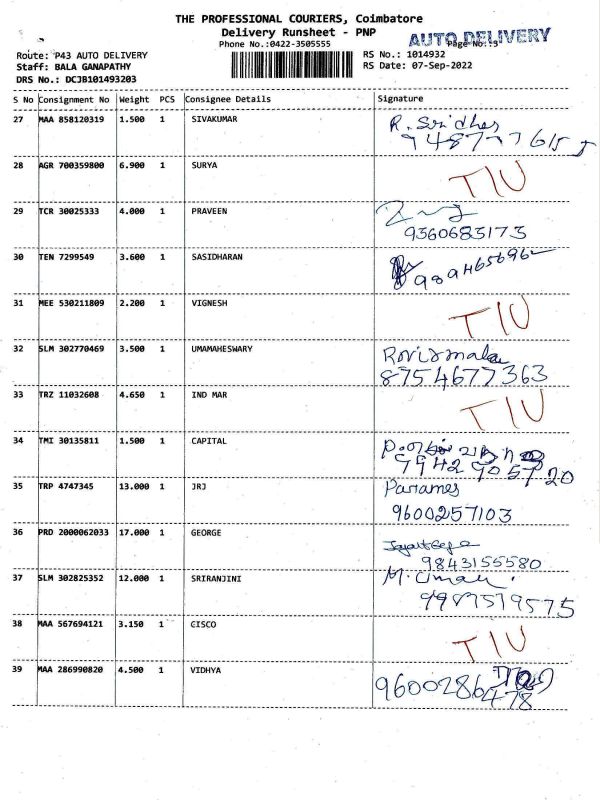 THE PROFESSIONAL COURIERS, Coimbatore
Delivery Runsheet - PNP
Phone No.:0422-3505555
AUTO DELIVERY
Page No.:3
Route: P43 AUTO DELIVERY
Staff: BALA GANAPATHY
DRS No.: DCJB101493203
RS No.: 1014932
RS Date: 07-Sep-2022
S No Consignment No Weight PCS Consignee Details Signature
27 MAA 858120319 1.500 1 SIVAKUMAR R. Sridhar
28 AGR 700359800 6.900 1 SURYA TIU
29 TCR 30025333 4.000 1 PRAVEEN
9360683173
30 TEN 7299549 3.600 1 SASIDHARAN
31 MEE 530211809 2.200 1 VIGNESH TIU
32 SLM 302770469 3.500 1 UMAMAHESWARY
8754677363
33 TRZ 11032608 4.650 1 IND MAR TIU
34 TMI 30135811 1.500 1 CAPITAL
9942905720
35 TRP 4747345 13.000 1 JRJ Parames
9600257103
36 PRD 2000062033 17.000 1 GEORGE
9843155580
37 SLM 302825352 12.000 1 SRIRANJINI
38 MAA 567694121 3.150 1 CISCO TIU
39 MAA 286990820 4.500 1 VIDHYA
9600286478